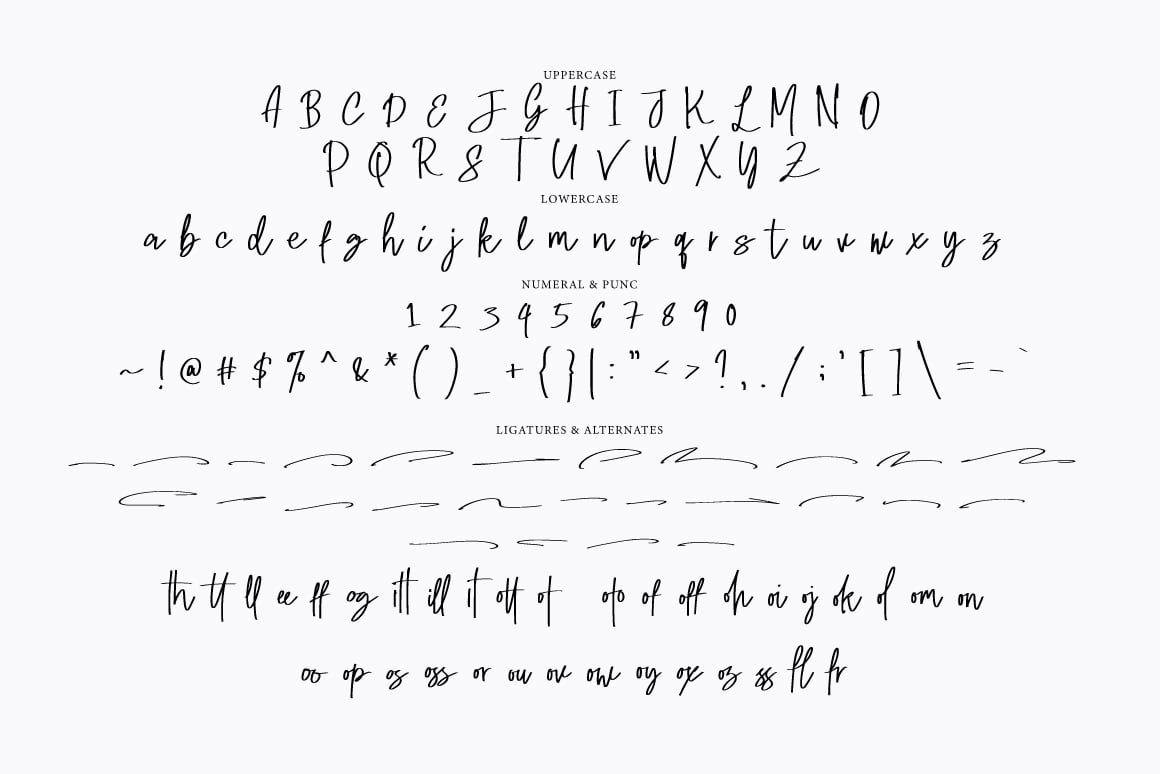 UPPERCASE
A B C D E F G H I J K L M N O
P Q R S T U V W X Y Z
LOWERCASE
a b c d e f g h i j k l m n op q r s t u v w x y z
NUMERAL & PUNC
1 2 3 4 5 6 7 8 9 0
~ ! @ # $ % ^ & * ( ) _ + { } | : " < > ? , . / ; ' [ ] \ = - `
LIGATURES & ALTERNATES
th tt ll ee ff og itt ill it ott ot oto of off oh oi oj ok ol om on
oo op os oss or ou ov ow oy ox oz ss fl fr